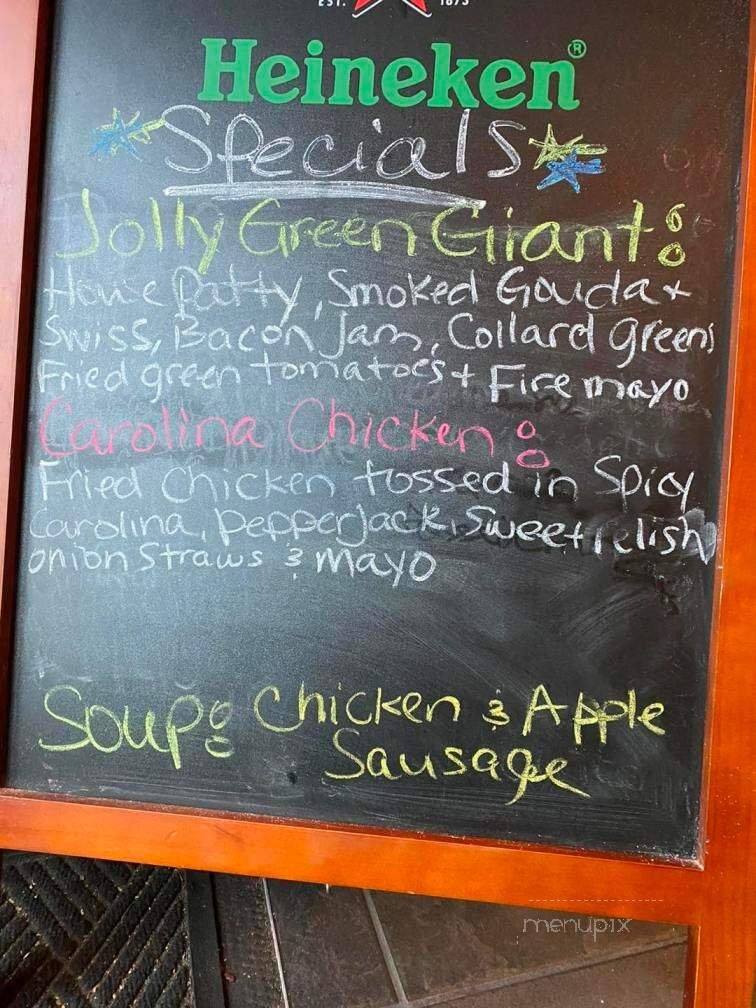 EST. 1873
Heineken®
Specials
Jolly Green Giant:
House Patty, Smoked Gouda +
Swiss, Bacon Jam, Collard greens
Fried green tomatoes + Fire mayo
Carolina Chicken:
Fried Chicken tossed in Spicy
Carolina, pepperjack, sweet relish
onion straws & mayo
Soup: Chicken & Apple
Sausage
menupix